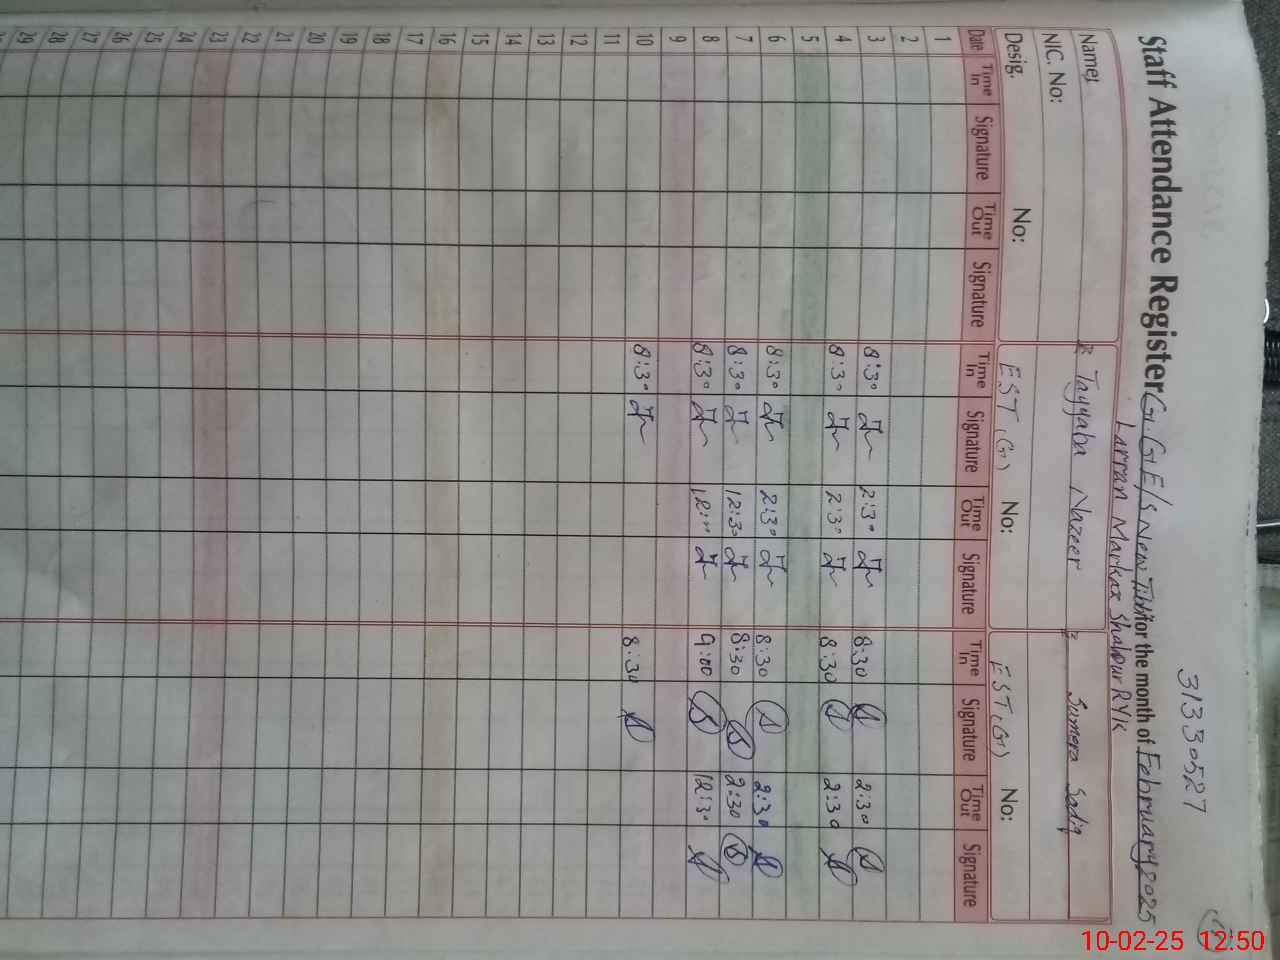 31330527
Staff Attendance Register G.G.E/S New Tibbi for the month of February 2025
Larran Markaz Shahpur RYK
Name:
Tayyaba Nazeer
Sumera Sadiq
NIC. No:
Desig. No: EST (G) No: EST (G) No:
Date Time In Signature Time Out Signature Time In Signature Time Out Signature Time In Signature Time Out Signature
1
2
3 8:30 2:30 8:30 2:30
4 8:30 2:30 8:30 2:30
5
6 8:30 2:30 8:30 2:30
7 8:30 12:30 8:30 2:30
8 8:30 12:00 9:00 12:30
9
10 8:30 8:30
11
12
13
14
15
16
17
18
19
20
21
22
23
24
25
26
27
28
29
10-02-25 12:50